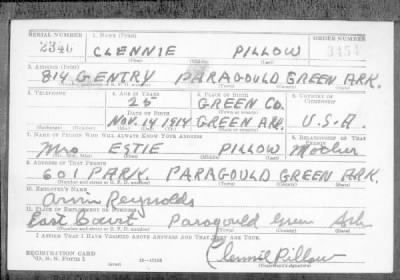 SERIAL NUMBER 1. NAME (Print) ORDER NUMBER
2346 CLENNIE PILLOW 3454
(First) (Middle) (Last)
2. ADDRESS (Print)
814 GENTRY PARAGOULD GREEN ARK.
(Number and street or R. F. D. number) (Town) (County) (State)
3. TELEPHONE 4. AGE IN YEARS 5. PLACE OF BIRTH 6. COUNTRY OF CITIZENSHIP
25 GREEN CO.
DATE OF BIRTH (Town or county)
NOV. 14 1914 GREEN ARK. U.S.A.
(Exchange) (Number) (Mo.) (Day) (Yr.) (State or country)
7. NAME OF PERSON WHO WILL ALWAYS KNOW YOUR ADDRESS 8. RELATIONSHIP OF THAT PERSON
Mrs ESTIE PILLOW Mother
(Mr., Mrs., Miss) (First) (Middle) (Last)
9. ADDRESS OF THAT PERSON
601 PARK. PARAGOULD GREEN ARK.
(Number and street or R. F. D. number) (Town) (County) (State)
10. EMPLOYER'S NAME
Arvin Reynolds
11. PLACE OF EMPLOYMENT OR BUSINESS
East Court Paragould Green Ark
(Number and street or R. F. D. number) (Town) (County) (State)
I AFFIRM THAT I HAVE VERIFIED ABOVE ANSWERS AND THAT THEY ARE TRUE.
REGISTRATION CARD
D. S. S. Form 1 16—17105 Clennie Pillow
(over) (Registrant's signature)